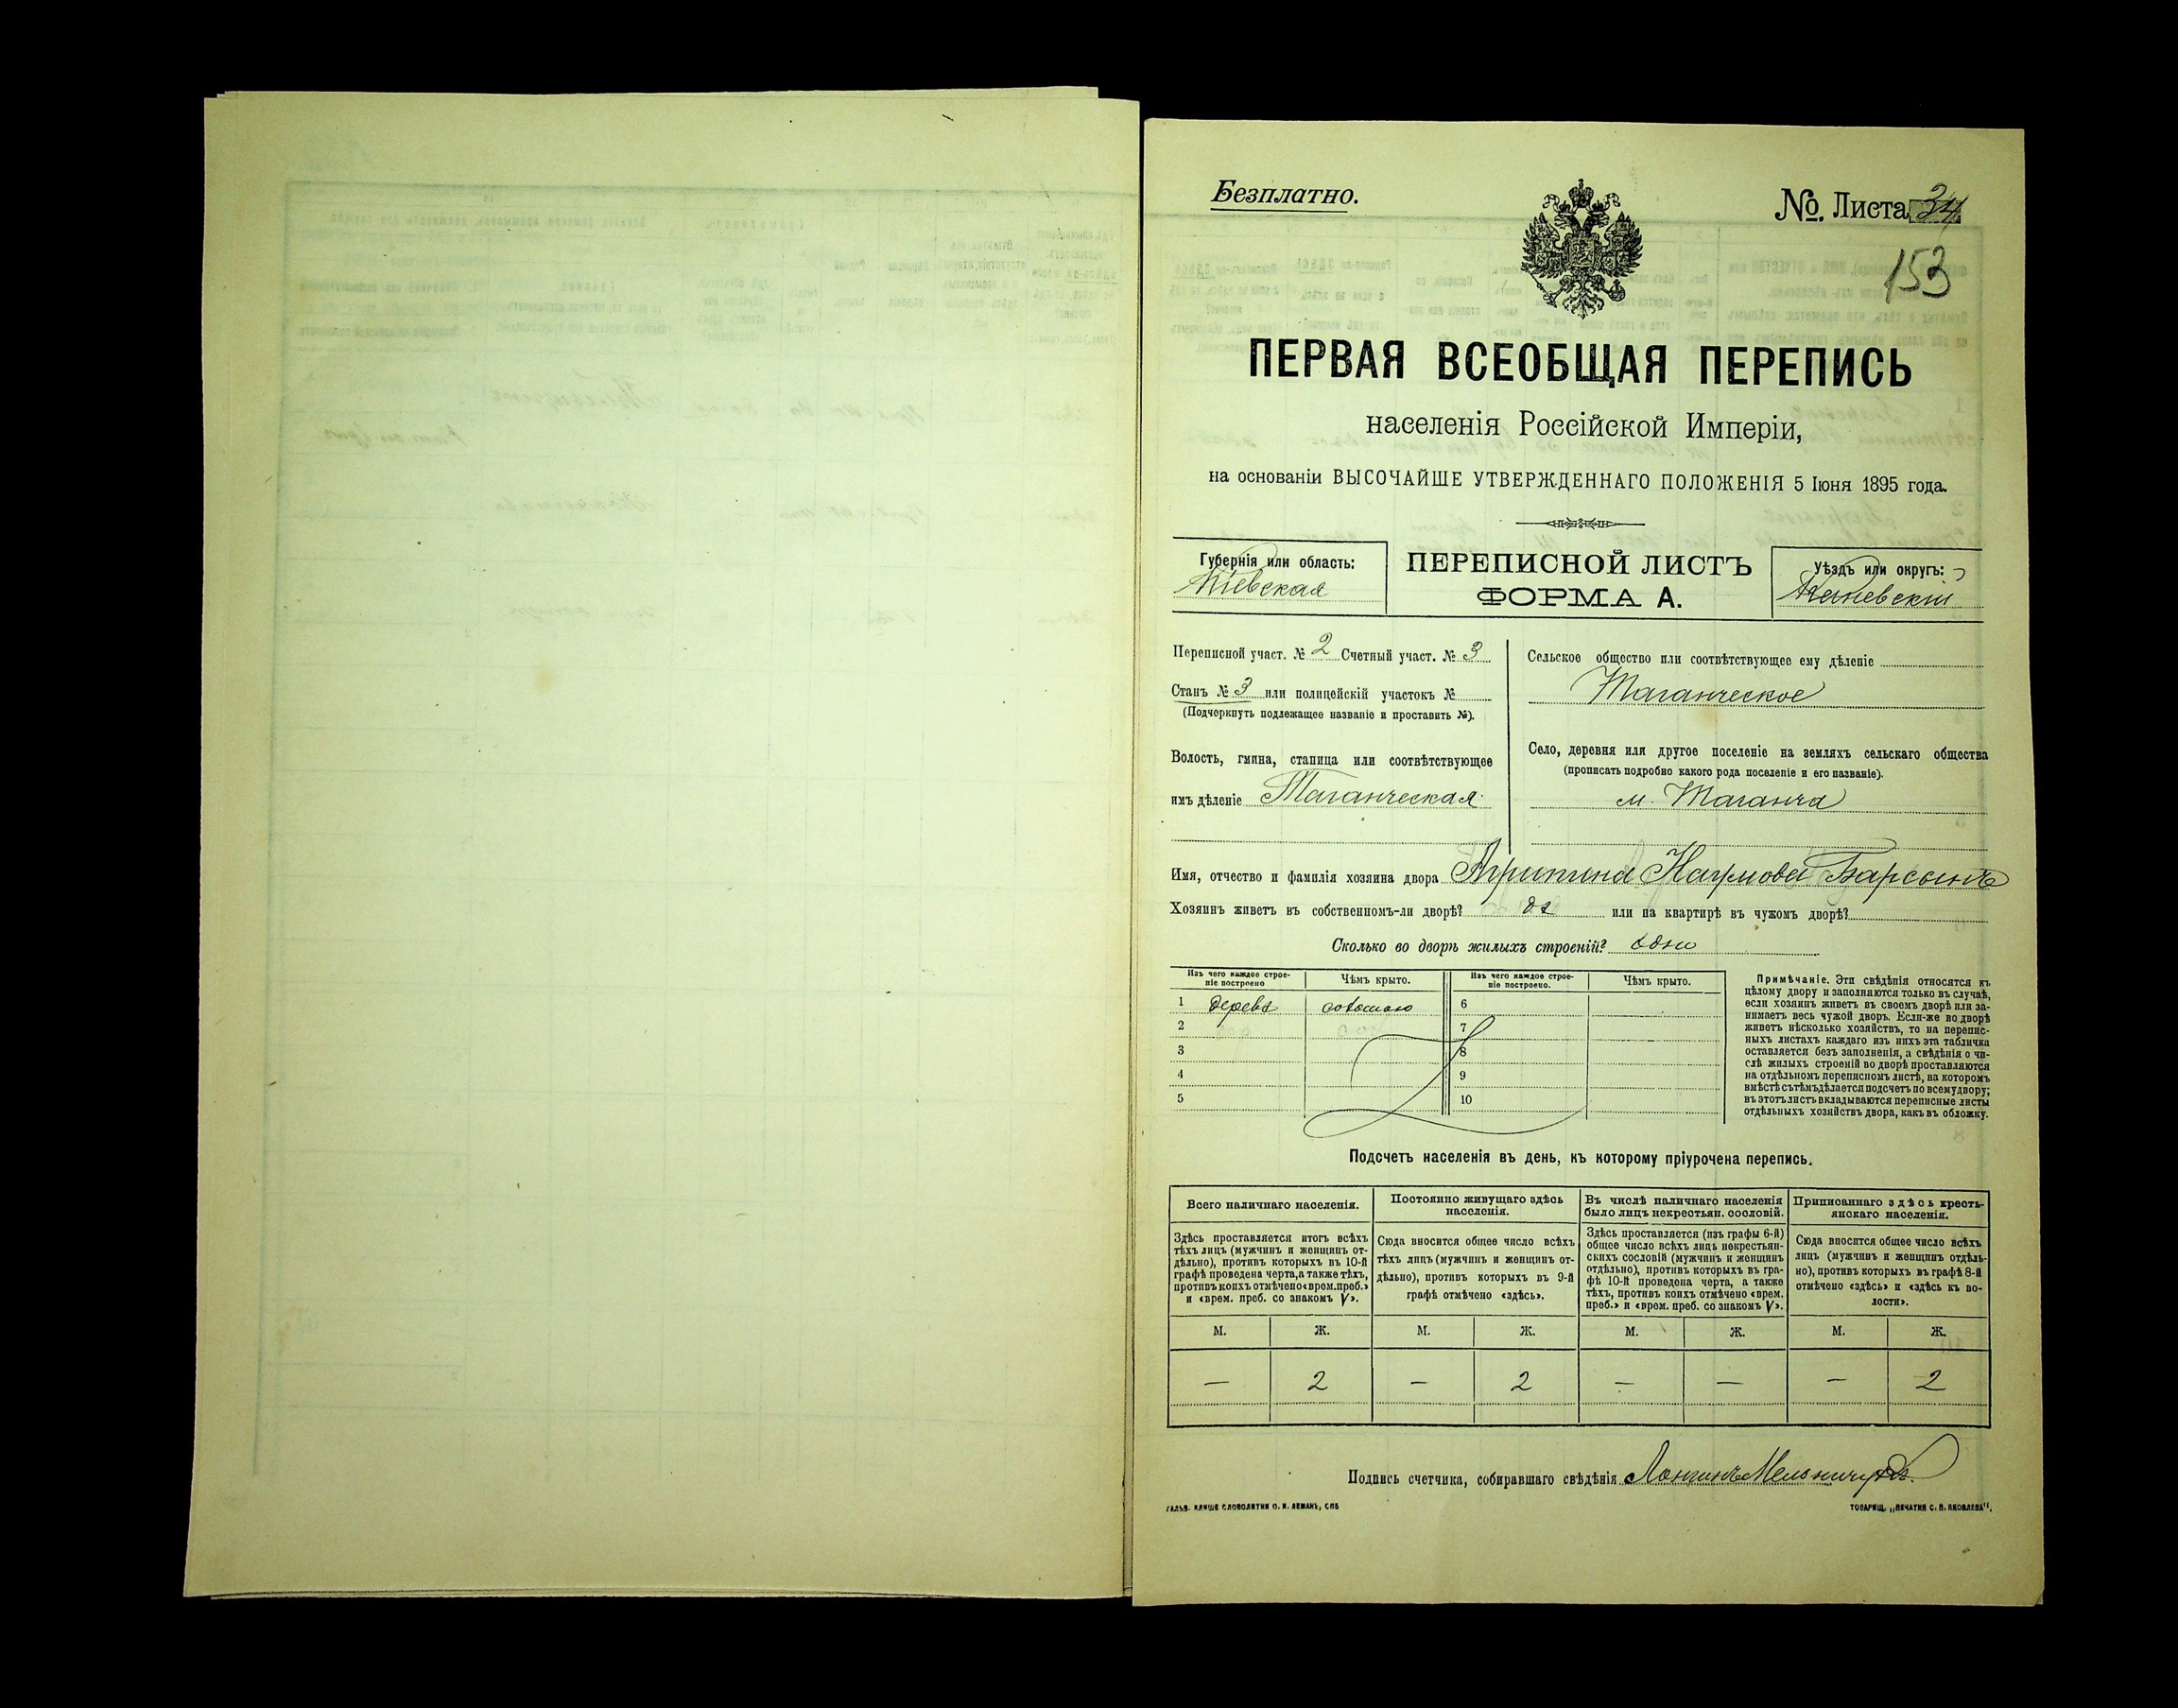 Безплатно.
№. Листа 34
153
ПЕРВАЯ ВСЕОБЩАЯ ПЕРЕПИСЬ
населенія Россійской Имперіи,
на основаніи ВЫСОЧАЙШЕ УТВЕРЖДЕННАГО ПОЛОЖЕНІЯ 5 Іюня 1895 года.
Губернія или область:
Кіевская
ПЕРЕПИСНОЙ ЛИСТЪ
ФОРМА А.
Уѣздъ или округъ:
Каневскій
Переписной участ. № 2 Счетный участ. № 3
Станъ № 3 или полицейскій участокъ №
(Подчеркнуть подлежащее названіе и проставить №).
Волость, гмина, станица или соотвѣтствующее
имъ дѣленіе Таганческая
Сельское общество или соотвѣтствующее ему дѣленіе
Таганческое
Село, деревня или другое поселеніе на земляхъ сельскаго общества
(прописать подробно какого рода поселеніе и его названіе).
м. Таганча
Имя, отчество и фамилія хозяина двора Агрипина Наумова
Хозяинъ живетъ въ собственномъ-ли дворѣ? да или на квартирѣ въ чужомъ дворѣ?
Сколько во дворѣ жилыхъ строеній? одно
Изъ чего каждое строе-
ніе построено
Чѣмъ крыто.
Изъ чего каждое строе-
ніе построено.
Чѣмъ крыто.
1 дерева соломою 6
2 7
3 8
4 9
5 10
Примѣчаніе. Эти свѣдѣнія относятся къ
цѣлому двору и заполняются только въ случаѣ,
если хозяинъ живетъ въ своемъ дворѣ или за-
нимаетъ весь чужой дворъ. Если-же во дворѣ
живетъ нѣсколько хозяйствъ, то на перепис-
ныхъ листахъ каждаго изъ нихъ эта табличка
оставляется безъ заполненія, а свѣдѣнія о чи-
слѣ жилыхъ строеній во дворѣ проставляются
на отдѣльномъ переписномъ листѣ, на которомъ
вмѣстѣ съ тѣмъ дѣлается подсчетъ по всему двору;
въ этотъ листъ вкладываются переписные листы
отдѣльныхъ хозяйствъ двора, какъ въ обложку.
Подсчетъ населенія въ день, къ которому пріурочена перепись.
Всего наличнаго населенія.
Здѣсь проставляется итогъ всѣхъ
тѣхъ лицъ (мужчинъ и женщинъ от-
дѣльно), противъ которыхъ въ 10-й
графѣ проведена черта, а также тѣхъ,
противъ коихъ отмѣчено «врем. преб.»
и «врем. преб. со знакомъ V».
Постоянно живущаго здѣсь
населенія.
Сюда вносится общее число всѣхъ
тѣхъ лицъ (мужчинъ и женщинъ от-
дѣльно), противъ которыхъ въ 9-й
графѣ отмѣчено «здѣсь».
Въ числѣ наличнаго населенія
было лицъ некрестьян. сословій.
Здѣсь проставляется (изъ графы 6-й)
общее число всѣхъ лицъ некрестьян-
скихъ сословій (мужчинъ и женщинъ
отдѣльно), противъ которыхъ въ гра-
фѣ 10-й проведена черта, а также
тѣхъ, противъ коихъ отмѣчено «врем.
преб.» и «врем. преб. со знакомъ V».
Приписаннаго здѣсь кресть-
янскаго населенія.
Сюда вносится общее число всѣхъ
лицъ (мужчинъ и женщинъ отдѣль-
но), противъ которыхъ въ графѣ 8-й
отмѣчено «здѣсь» и «здѣсь къ во-
лости».
М. Ж. М. Ж. М. Ж. М. Ж.
— 2 — 2 — — — 2
Подпись счетчика, собиравшаго свѣдѣнія Лонгинъ
ГАЛЬВ. КЛИШЕ СЛОВОЛИТНИ О. И. ЛЕМАНЪ, СПБ
ТОВАРИЩ. „ПЕЧАТНЯ С. П. ЯКОВЛЕВА".